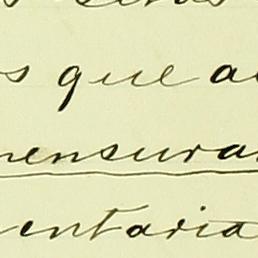 s que a
mensura
entaria